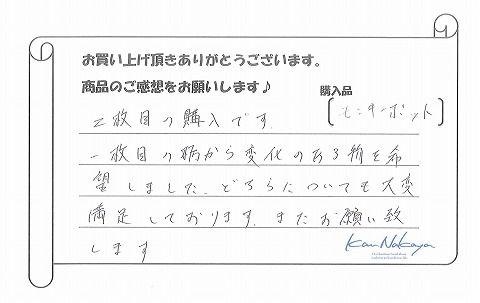 お買い上げ頂きありがとうございます。
商品のご感想をお願いします♪
購入品
モーターボット
二枚目の購入です。
一枚目の柄から変化のある物を希
望しました。どちらについても大変
満足しております。またお願い致
します
Kan Nakaya